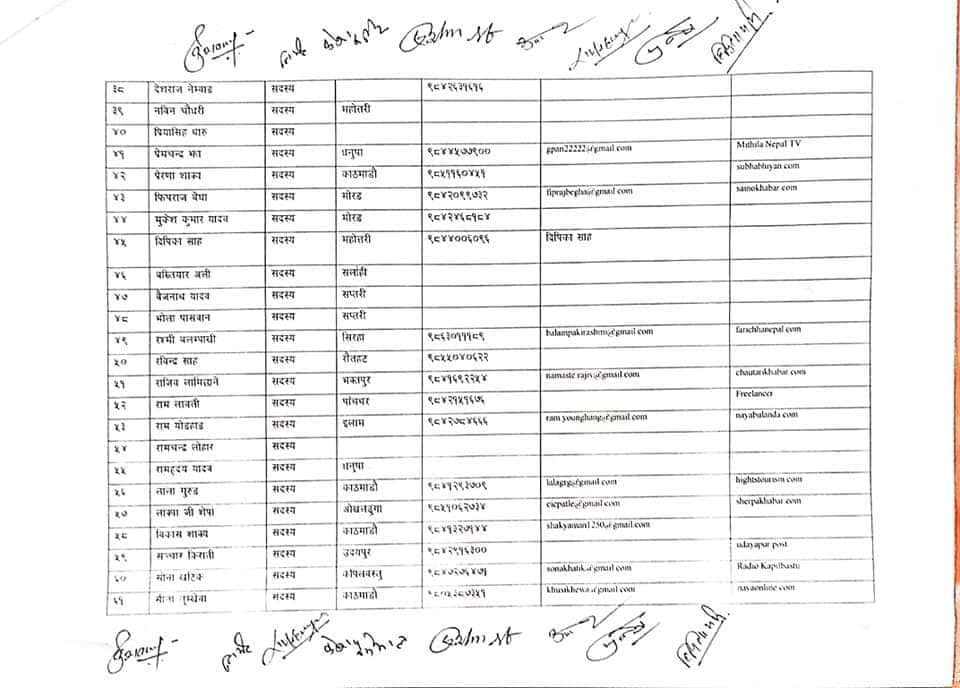 ३८ देशराज नेम्वाङ सदस्य ९८४२६३१६१६
३९ नविन चौधरी सदस्य महोत्तरी
४० प्रियासिंह थारु सदस्य
४१ प्रेमचन्द्र झा सदस्य धनुषा ९८४४५७७९०० gpan22222@gmail.com Mithila Nepal TV
४२ प्रेरणा शाक्य सदस्य काठमाडौ ९८५११६०४५१ subhabihyan.com
४३ फिपराज बेघा सदस्य मोरङ ९८४२०९९७३२ fiprajbegha@gmail.com sainokhabar.com
४४ मुकेश कुमार यादव सदस्य मोरङ ९८४२४६८१८४
४५ दिपिका साह सदस्य महोत्तरी ९८४४००६०१६ दिपिका साह
४६ बख्तियार अली सदस्य सर्लाही
४७ बैजनाथ यादव सदस्य सप्तरी
४८ भोला पासवान सदस्य सप्तरी
४९ रश्मी बलम्पाकी सदस्य सिरहा ९८६३०१११८९ balampakirashmi@gmail.com farichhanepal.com
५० रविन्द्र साह सदस्य रौतहट ९८५५०४०६२२
५१ राजिव लामिछाने सदस्य भक्तपुर ९८४१६९२२५४ namaste.rajiv@gmail.com chautarikhabar.com
५२ राम लावती सदस्य पांचथर ९८४२१५१६७६ Freelancer
५३ राम योङहाङ सदस्य इलाम ९८४२७८४६६६ ram.younghang@gmail.com nayabulanda.com
५४ रामचन्द्र लोहार सदस्य
५५ रामहृदय यादव सदस्य धनुषा
५६ लाला गुरुङ सदस्य काठमाडौ ९८४१२९३७०९ lalagrg@gmail.com hightstourism.com
५७ लाक्पा जी शेर्पा सदस्य ओखलढुंगा ९८५१०६२७३४ esepatle@gmail.com sherpakhabar.com
५८ विकास शाक्य सदस्य काठमाडौ ९८४१३२७१४४ shakyaman1250@gmail.com
५९ सञ्चार किराती सदस्य उदयपुर ९८४२९१६३०० udayapur post
६० सोना खटिक सदस्य कपिलवस्तु ९८४७२७६४७१ sonakhatik@gmail.com Radio Kapilbastu
६१ सदस्य काठमाडौ nayaonline.com